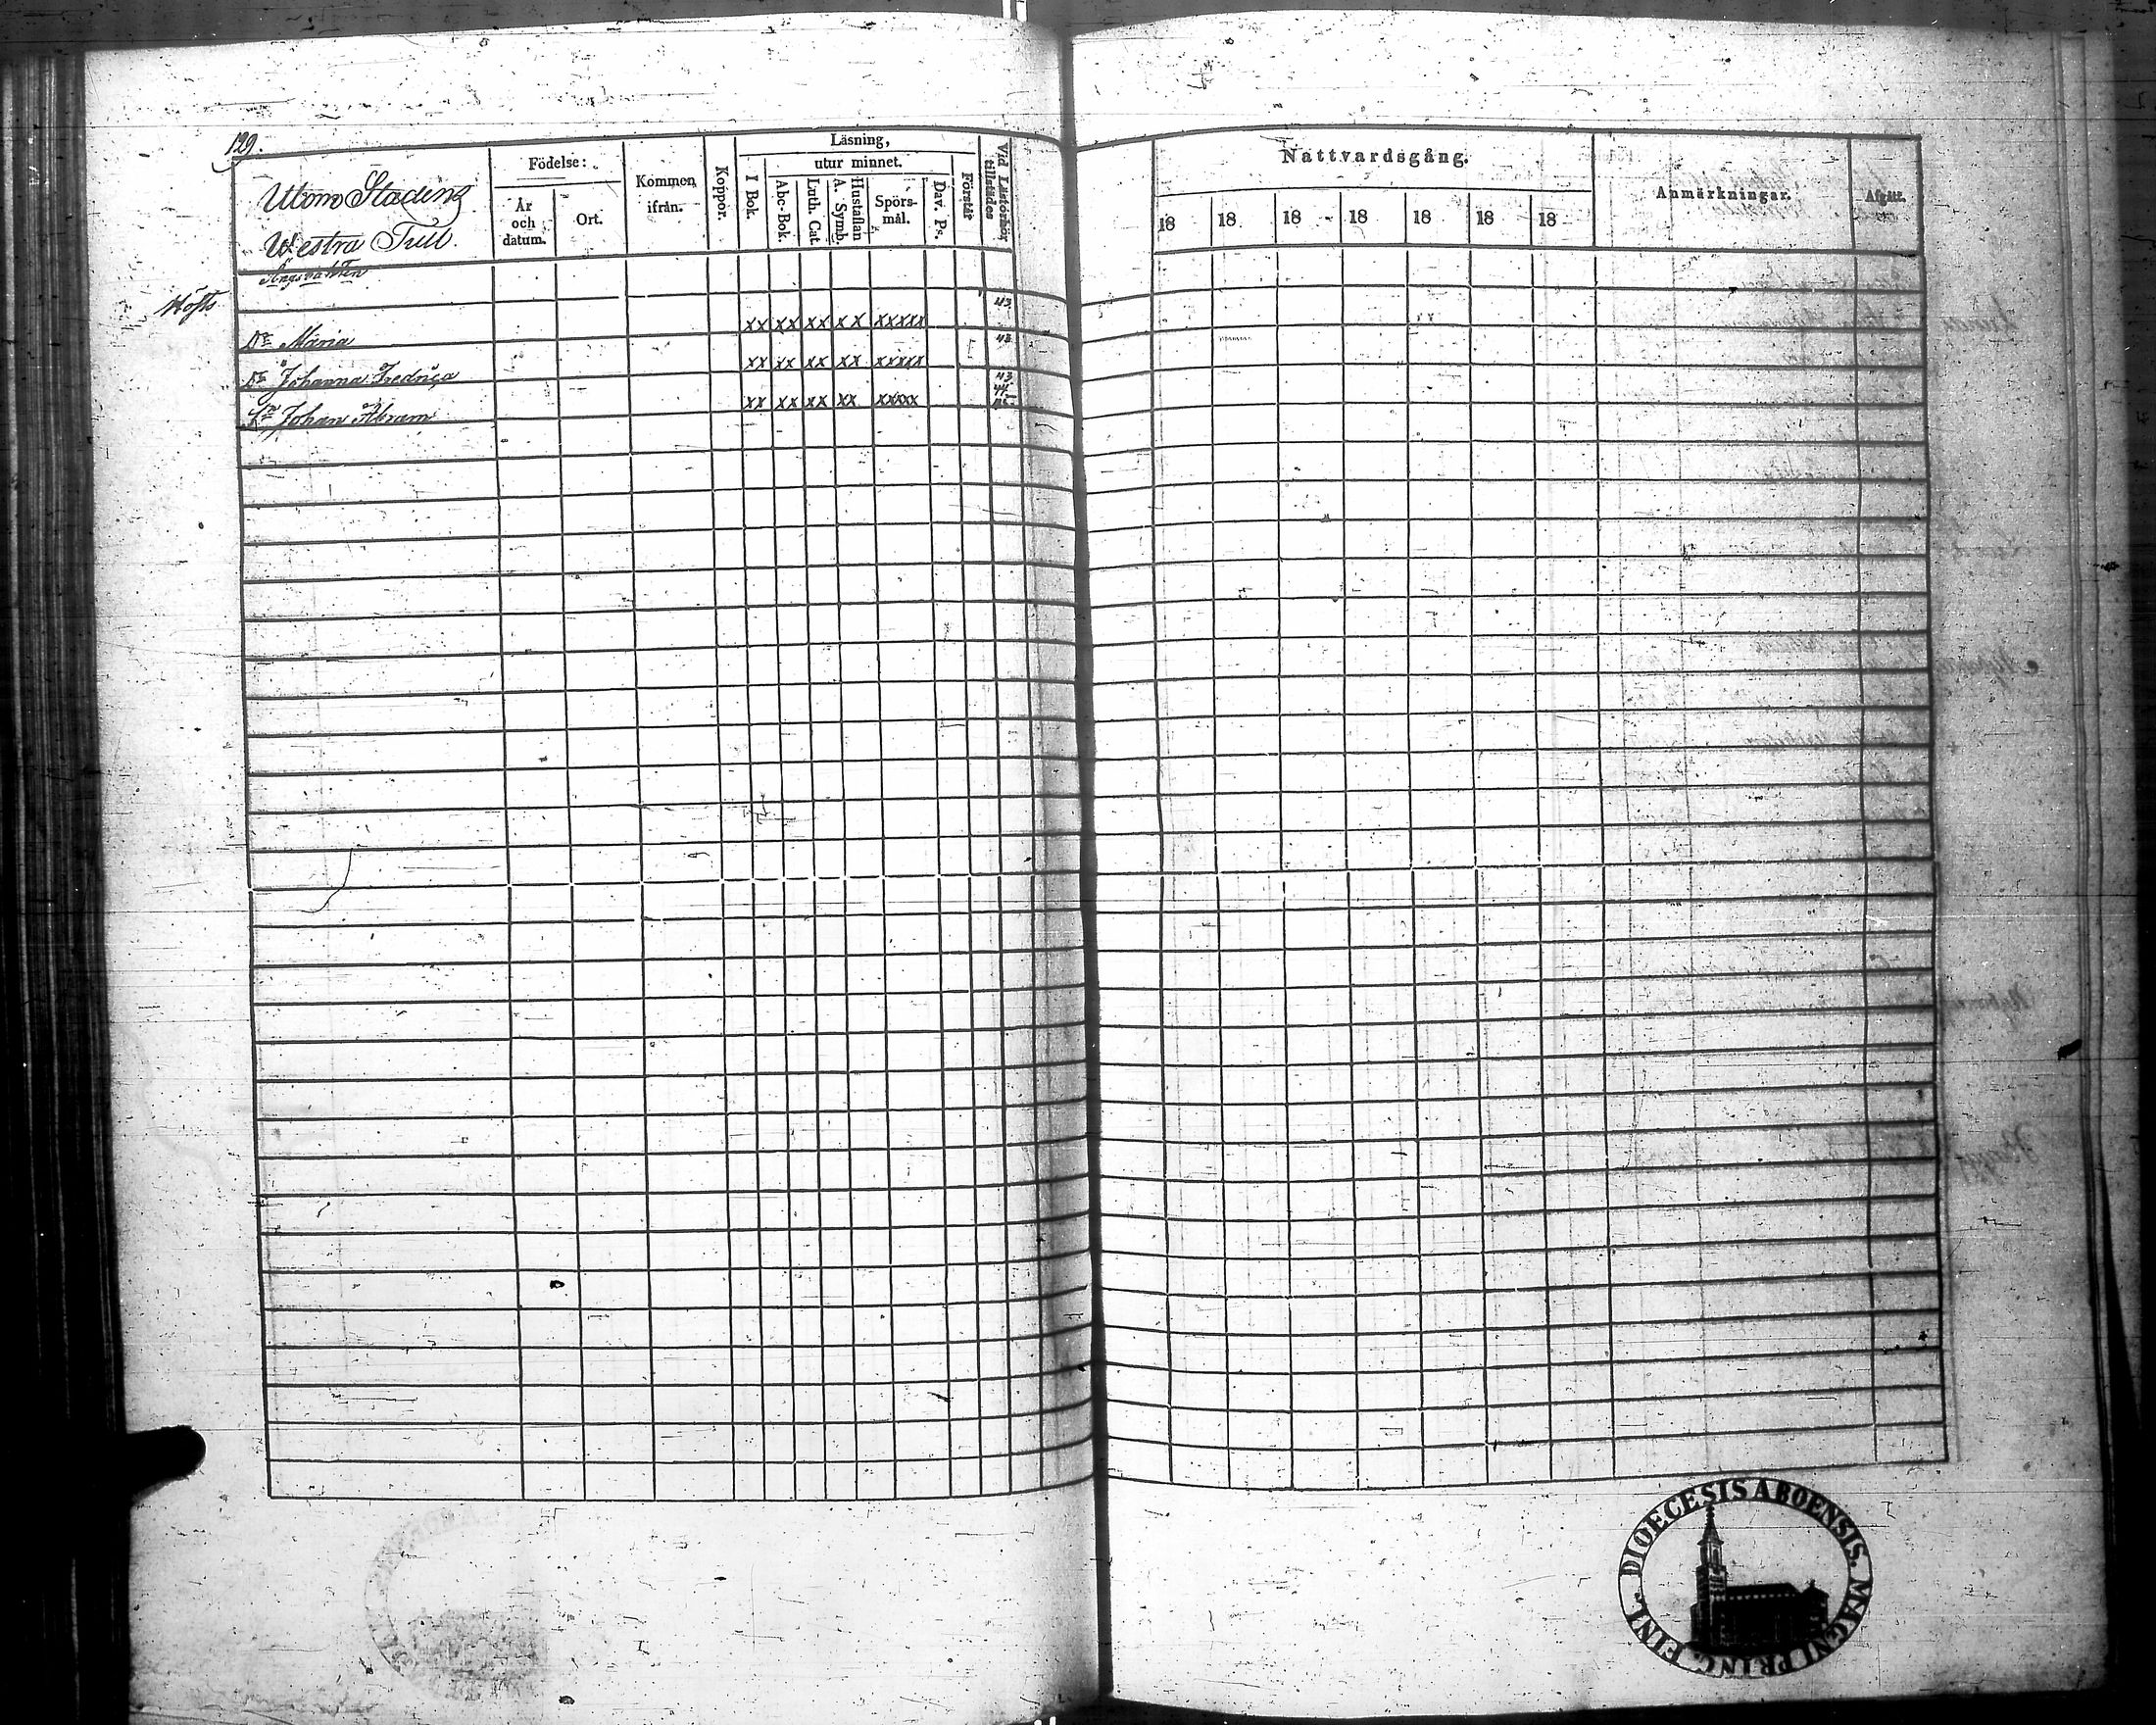 129.
Utom Stadens
Westra Tull.
Födelse:
År och datum.
Ort.
Kommen ifrån.
Koppor.
Läsning,
I Bok.
utur minnet.
Abc-Bok.
Luth. Cat.
Hustaflan A. Symb.
Spörsmål.
Dav. Ps.
Förstår
Vid Läsförhör tillstädes
Nattvardsgång.
18 18 18 18 18 18 18
Anmärkningar.
Afgått.
43
xx xx xx xx xxxxx
Dr Maria 43
xx xx xx xx xxxxx
Dr Johanna Fredrica 43
xx xx xx xx xxxxx
Sn Johan Abram
DIOECESIS ABOENSIS. MAGNI PRINC. FINL.